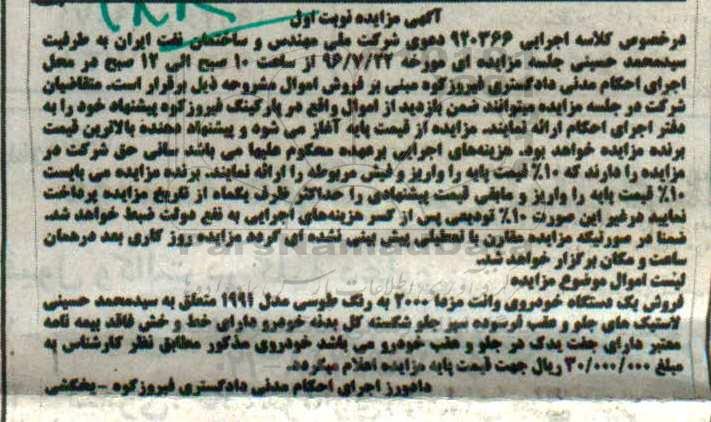 آگهی مزایده نوبت اول
درخصوص کلاسه اجرایی ۹۲۰۳۶۶ دعوی شرکت ملی مهندسی و ساختمان نفت ایران به طرفیت
سیدمحمد حسینی جلسه مزایده ای مورخه ۹۶/۷/۲۲ از ساعت ۱۰ صبح الی ۱۲ صبح در محل
اجرای احکام مدنی دادگستری فیروزکوه مبنی بر فروش اموال مشروحه ذیل برقرار است. متقاضیان
شرکت در جلسه مزایده میتوانند ضمن بازدید از اموال واقع در پارکینگ فیروزکوه پیشنهاد خود را به
دفتر اجرای احکام ارائه نمایند. مزایده از قیمت پایه آغاز می شود و پیشنهاد دهنده بالاترین قیمت
برنده مزایده خواهد بود. هزینه‌های اجرایی برعهده محکوم علیها می باشد کسانی حق شرکت در
مزایده را دارند که ۱۰٪ قیمت پایه را واریز و فیش مربوطه را ارائه نمایند. برنده مزایده می بایست
۱۰٪ قیمت پایه را واریز و مابقی قیمت پیشنهادی را حداکثر ظرف یکماه از تاریخ مزایده پرداخت
نمایید درغیر این صورت ۱۰٪ تودیعی پس از کسر هزینه‌های اجرایی به نفع دولت ضبط خواهد شد.
ضمنا در صورتیکه مزایده مقارن با تعطیلی پیش بینی نشده ای گردد مزایده روز کاری بعد درهمان
ساعت و مکان برگزار خواهد شد.
لیست اموال موضوع مزایده
فروش یک دستگاه خودروی وانت مزدا ۲۰۰۰ به رنگ طوسی مدل ۱۹۹۱ متعلق به سیدمحمد حسینی
لاستیک های جلو و عقب فرسوده سپر جلو شکسته کل بدنه خودرو دارای خط و خش فاقد بیمه نامه
معتبر دارای جفت یدک در جلو و عقب خودرو می باشد خودروی مذکور مطابق نظر کارشناس به
مبلغ ۳۰/۰۰۰/۰۰۰ ریال جهت قیمت پایه مزایده اعلام میگردد.
دادورز اجرای احکام مدنی دادگستری فیروزکوه -یخکشی